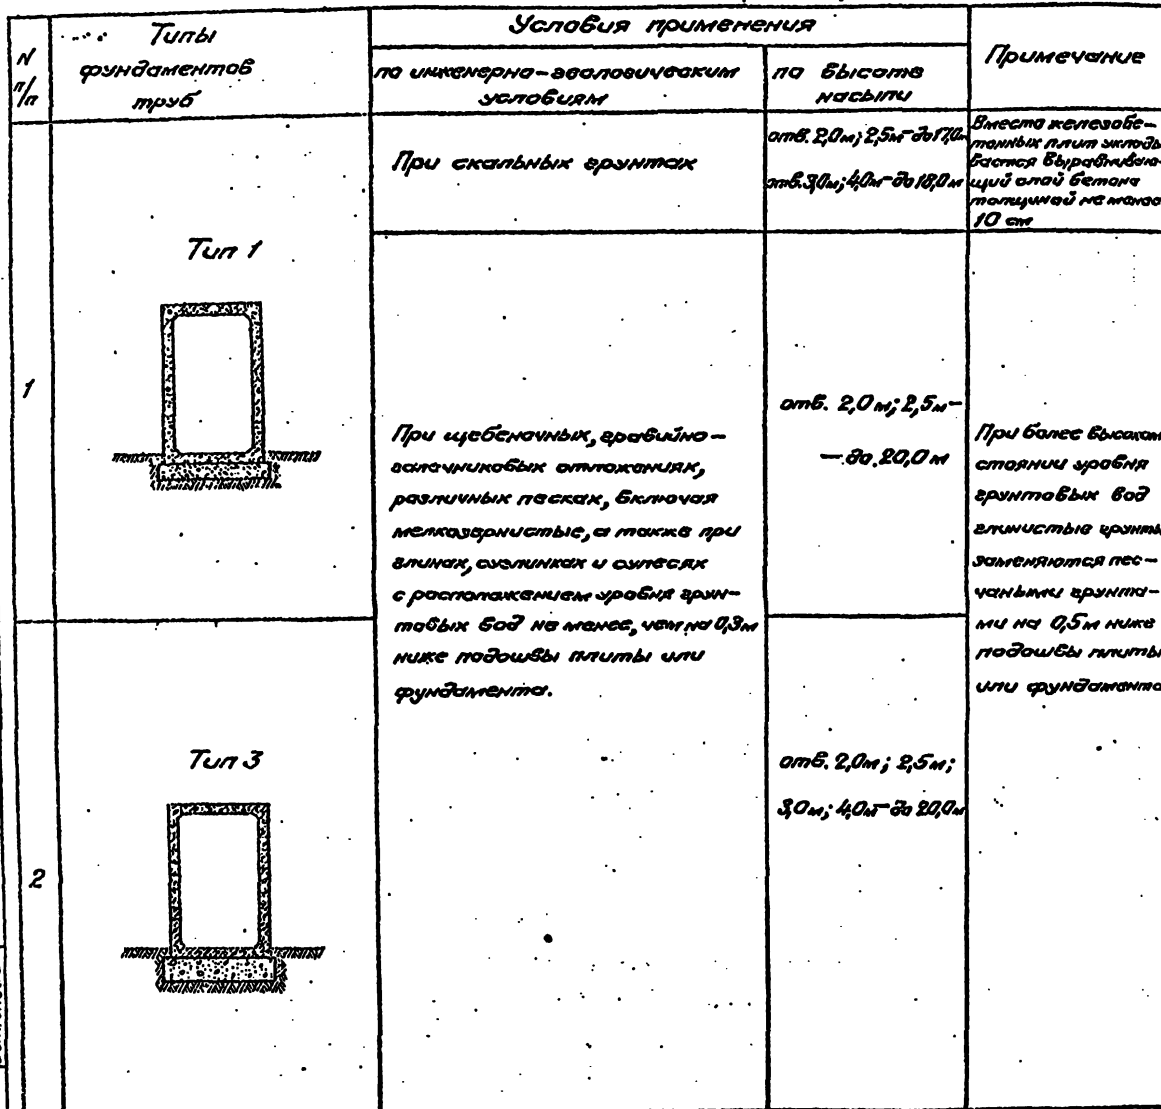 N п/п
Типы
фундаментов
труб
Условия применения
по инженерно-геологическим
условиям
по высоте
насыпи
Примечание
1
Тип 1
При скальных грунтах
отв. 2,0м; 2,5м-до 17,0м
отв. 3,0м; 4,0м-до 18,0м
Вместо железобе-
тонных плит уклады
вается выравниваю-
щий слой бетона
толщиной не менее
10 см
При щебеночных, гравийно-
галечниковых отложениях,
различных песках, включая
мелкозернистые, а также при
глинах, суглинках и супесях
с расположением уровня грун-
товых вод не менее, чем на 0,3м
ниже подошвы плиты или
фундамента.
отв. 2,0м; 2,5м-
- до 20,0 м
При более высоком
стоянии уровня
грунтовых вод
глинистые грунты
заменяются пес-
чаными грунта-
ми на 0,5м ниже
подошвы плиты
или фундамента
2
Тип 3
отв. 2,0м; 2,5м;
3,0м; 4,0м-до 20,0м